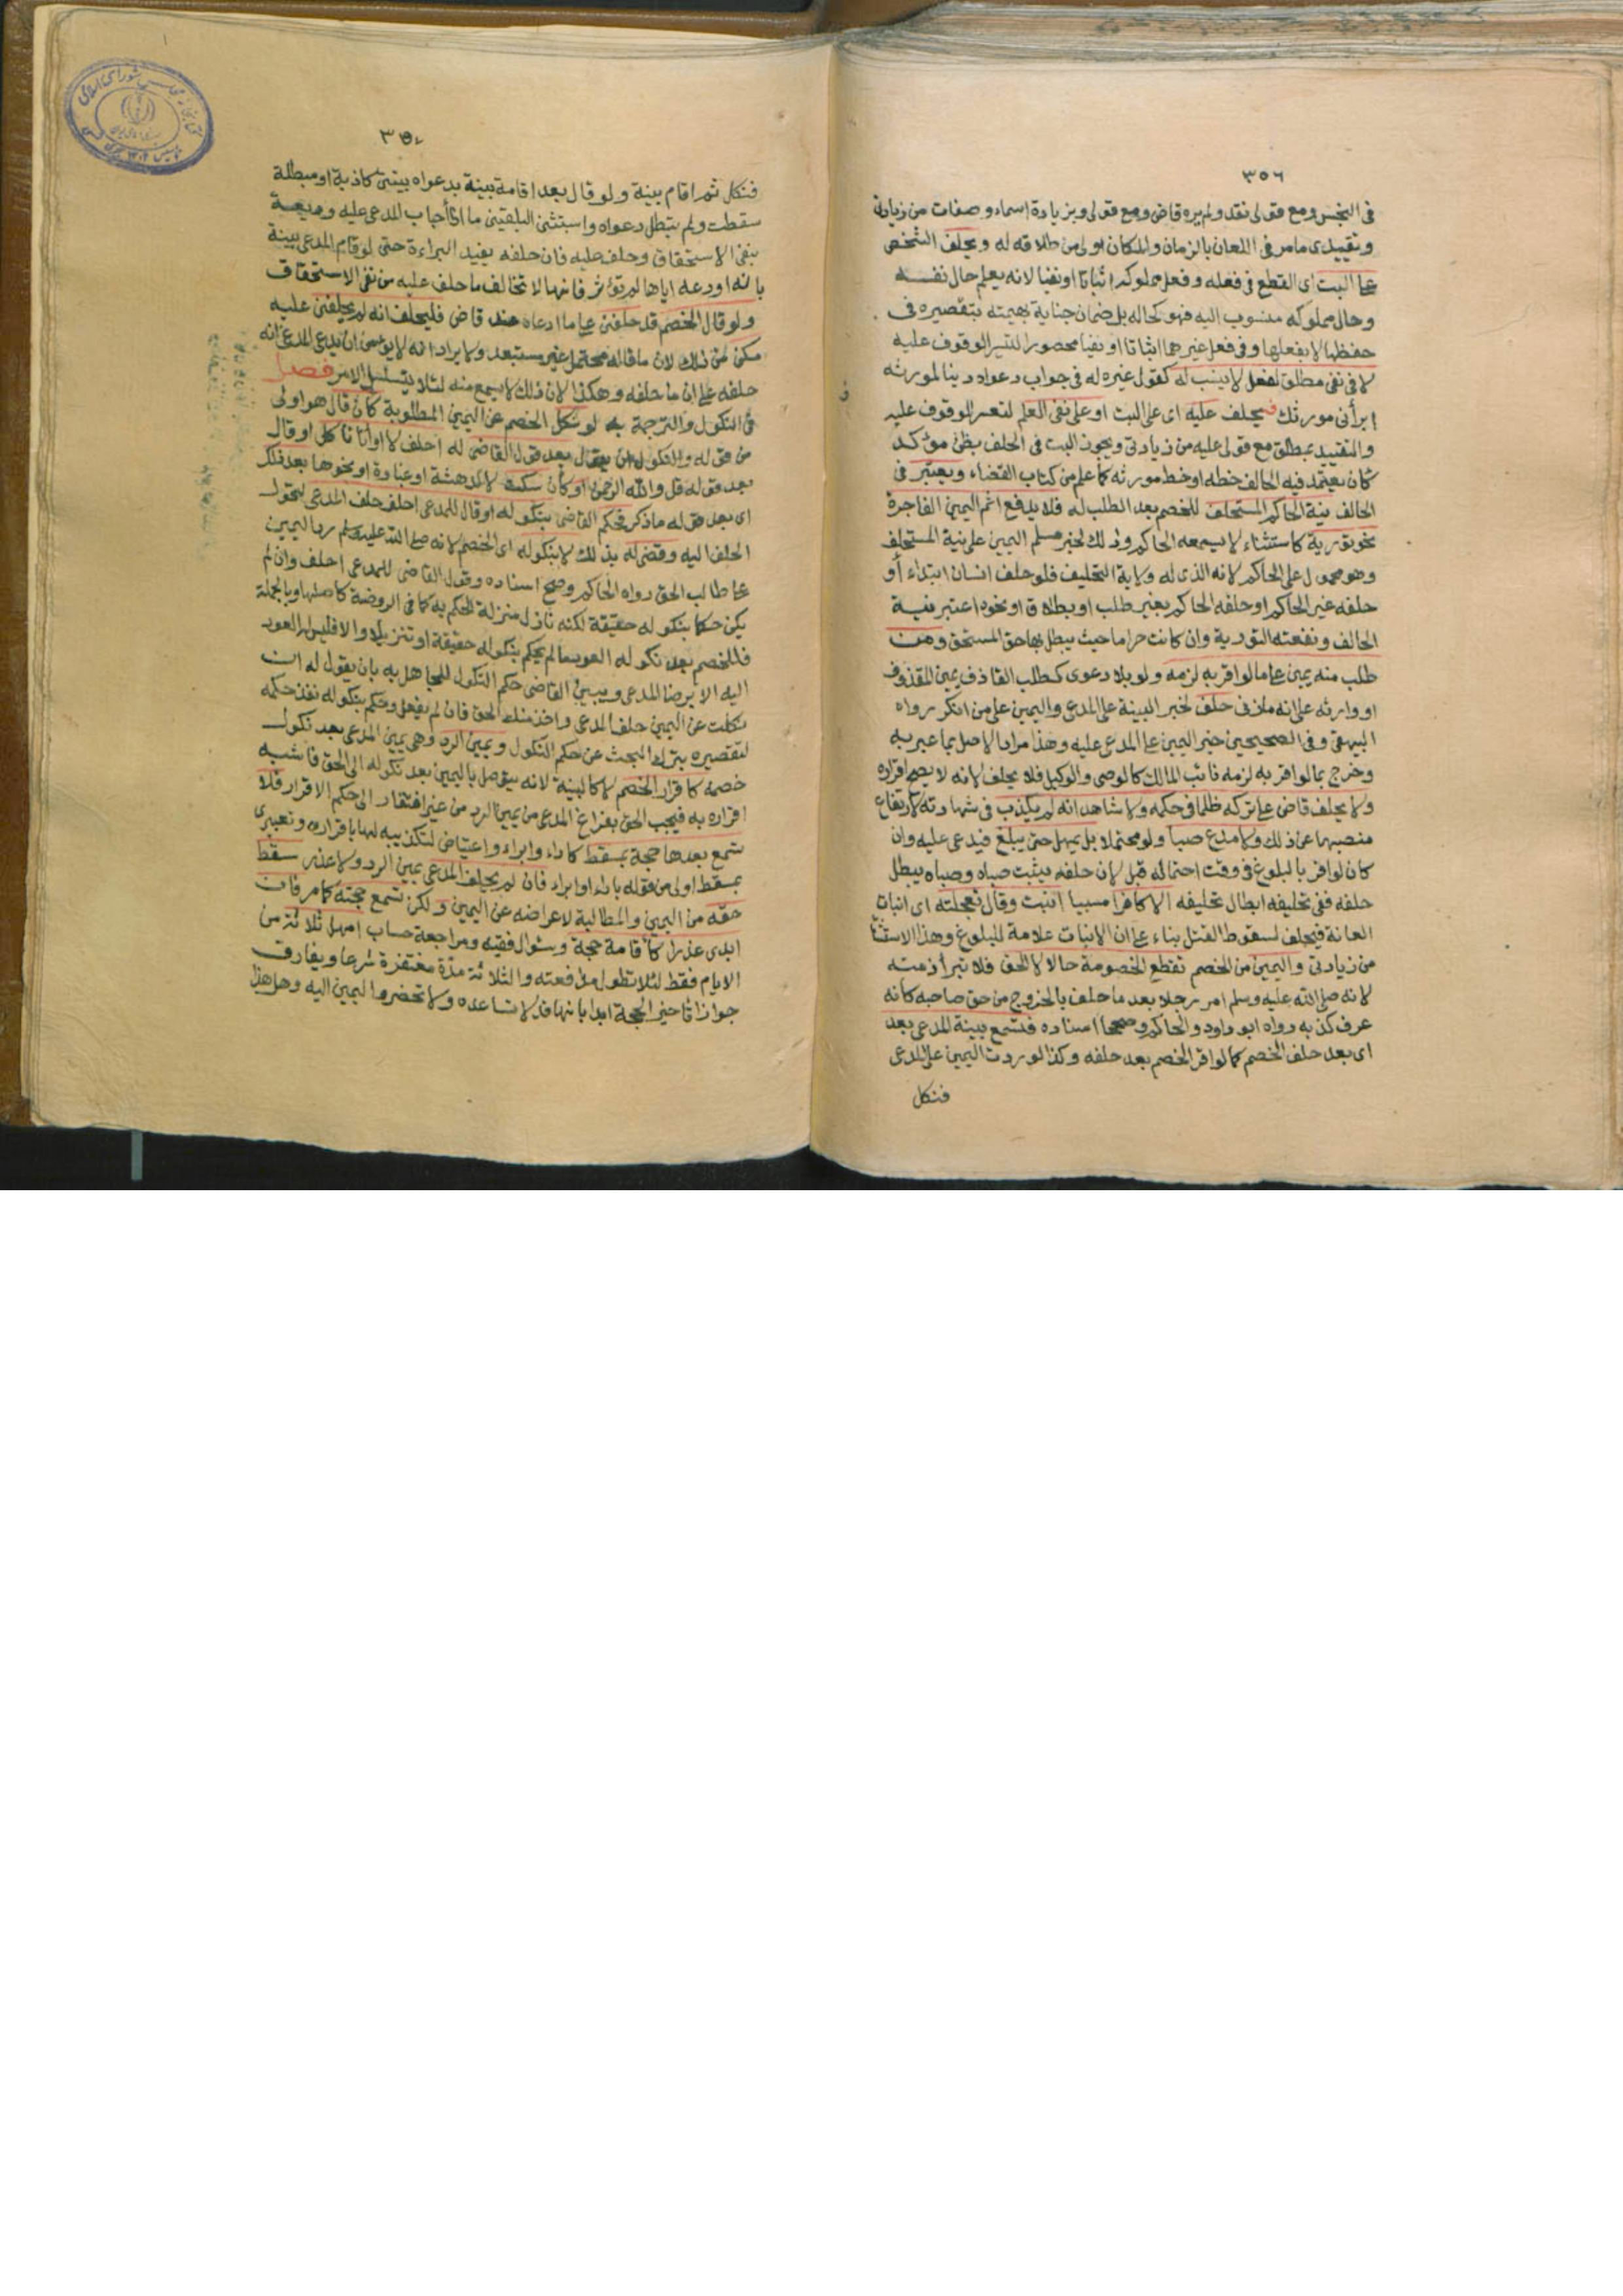 ٣٥٦
في البخس ومع قولي نقد ولم يره قاض ومع قولي وبزيادة اسماء وصفات من زيادتي
وتقييدي مامر في اللعان بالزمان والمكان اولى من طلاقه له ويحلف الشخص
على البت اي القطع في فعله وفعل مملوكه اثباتا او نفيا لانه يعلم حال نفسه
وحال مملوكه منسوب اليه فهو كحاله بل ضمان جناية بهيمته بتقصيره في
حفظها لا بفعلها وفي فعل غيرهما اثباتا او نفيا محصورا لتيسر الوقوف عليه
لا في نفي مطلق لفعل لا ينسب له كقول غيره له في جواب دعواه دينا لمورثه
ابرأني مورثك فيحلف عليه اي على البت او على نفي العلم لتعسر الوقوف عليه
والتقييد بمطلق مع قولي عليه من زيادتي ويجوز البت في الحلف بظن مؤكد
كان يعتمد فيه الحالف خطه او خط مورثه كما علم من كتاب القضاء ويعتبر في
الحالف نية الحاكم المستحلف للخصم بعد الطلب له فلا يدفع اثم اليمين الفاجرة
نحو تورية كاستثناء لا يسمعه الحاكم وذلك لخبر مسلم اليمين على نية المستحلف
وهو محمول على الحاكم لانه الذي له ولاية التحليف فلو حلف انسان ابتداء أو
حلفه غير الحاكم او حلفه الحاكم بغير طلب او بطلاق او نحوه اعتبر نية
الحالف ونفعته التورية وان كانت حراما حيث يبطل بها حق المستحق ومن
طلب منه يمين على ما لو اقر به لزمه ولو بلا دعوى كطلب القاذف يمين المقذوف
او وارثه على انه ما زنى حلف لخبر البينة على المدعي واليمين على من انكر رواه
البيهقي وفي الصحيحين خبر اليمين على المدعى عليه وهذا مراد الاصل بما عبر به
وخرج بما لو اقر به لزمه نائب المالك كالوصي والوكيل فلا يحلف لانه لا يصح اقراره
ولا يحلف قاض على تركه ظلما في حكمه ولا شاهد انه لم يكذب في شهادته لارتفاع
منصبهما عن ذلك ولا مدع صبا ولو محتملا بل يمهل حتى يبلغ فيدعى عليه وان
كان لو اقر بالبلوغ في وقت احتماله قبل لان حلفه يثبت صباه وصباه يبطل
حلفه ففي تحليفه ابطال تحليفه الا كافرا مسبيا انبت وقال تعجلته اي انبات
العانة فيحلف لسقوط القتل بناء على ان الانبات علامة للبلوغ وهذا الاستثنا
من زيادتي واليمين من الخصم تقطع الخصومة حالا لا الحق فلا تبرأ ذمته
لانه صلى الله عليه وسلم امر رجلا بعد ما حلف بالخروج من حق صاحبه كأنه
عرف كذبه رواه ابو داود والحاكم وصححا اسناده فتسمع بينة المدعي بعد
اي بعد حلف الخصم كما لو اقر الخصم بعد حلفه وكذا لو ردت اليمين على المدعي
فنكل
٣٥٧
فنكل ثم اقام بينة ولو قال بعد اقامة بينة بدعواه بينتي كاذبة او مبطلة
سقطت ولم تبطل دعواه واستثنى البلقيني ما اذا أجاب المدعى عليه وديعة
بنفي الاستحقاق وحلف عليه فان حلفه يفيد البراءة حتى لو قام المدعي بينة
بانه اودعه اياها لم تؤثر فانها لا تخالف ما حلف عليه من نفي الاستحقاق
ولو قال الخصم قد حلفني على ما ادعاه عند قاض فليحلف انه لم يحلفني عليه
مكن من ذلك لان ما قاله محتمل غير مستبعد ولا يراد انه لا يؤمن ان يدعي المدعي انه
حلفه على ان ما حلفه وهكذا لان ذلك لا يسمع منه لئلا يتسلسل الامر فصل
في النكول والترجمة به لو نكل الخصم عن اليمين المطلوبة كان قال هو اولى
من قوله والنكول ان يقال بعد قول القاضي له احلف لا او انا ناكل او قال
بعد قوله قل والله الرحمن او كان سكت لا لدهشة او غباوة او نحوها بعد ذلك
اي بعد قوله ما ذكر فحكم القاضي بنكوله او قال للمدعي احلف حلف المدعي لتحول
الحلف اليه وقضى له بذلك لا بنكوله اي الخصم لانه صلى الله عليه وسلم رد اليمين
على طالب الحق رواه الحاكم وصحح اسناده وقول القاضي للمدعي احلف وان لم
يكن حكما بنكوله حقيقة لكنه نازل منزلة الحكم به كما في الروضة كاصلها وبالجملة
فللخصم بعد نكوله العود ما لم يحكم بنكوله حقيقة او تنزيلا والا فليس له العود
اليه الا برضا المدعي ويبين القاضي حكم النكول للجاهل به بان يقول له ان
نكلت عن اليمين حلف المدعي واخذ منك الحق فان لم يفعل وحكم بنكوله نفذ حكمه
لتقصيره بترك البحث عن حكم النكول ويمين الرد وهي يمين المدعي بعد نكول
خصمه كاقرار الخصم لا كالبينة لانه يتوصل باليمين بعد نكوله الى الحق فاشبه
اقراره به فيجب الحق بفراغ المدعي من يمين الرد من غير افتقار الى حكم الاقرار فلا
تسمع بعدها حجة بمسقط كاداء وابراء واعتياض لتكذيبه لها باقراره وتعبيري
بمسقط اولى من قوله باداء او ابراء فان لم يحلف المدعي يمين الرد ولا عذر سقط
حقه من اليمين والمطالبة لاعراضه عن اليمين ولكن تسمع حجته كما مر فان
ابدى عذرا كاقامة حجة وسئوال فقيه ومراجعة حساب امهل ثلاثة من
الايام فقط لئلا تطول مدافعته والثلاثة مدة مغتفرة شرعا ويفارق
جواز تاخير الحجة ابدا بانها قد لا تساعده ولا تحضر واليمين اليه وهل هذا